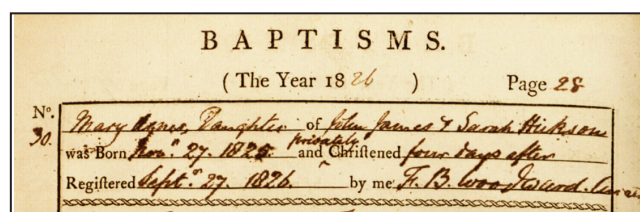 BAPTISMS.
(The Year 1826) Page 28
No. 30.
Mary Agnes, Daughter of John James & Sarah Hickson
was Born Novr. 27. 1825. and privately Christened four days after
Registered Septr. 27. 1826. by me F. B. Woodward.